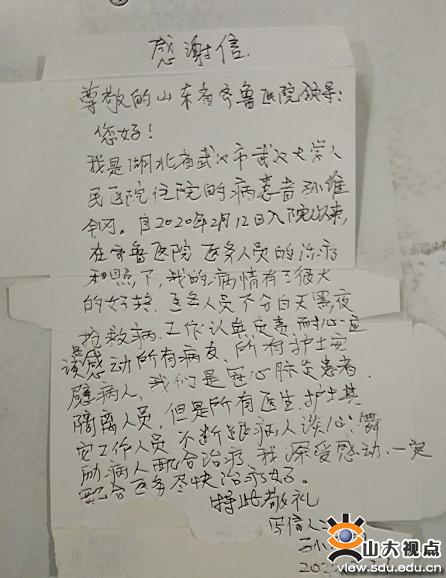 感谢信
尊敬的山东省齐鲁医院领导:
您好!
我是湖北省武汉市武汉大学人
民医院住院的病患者孙维
钢。自2020年2月12日入院以来,
在齐鲁医院医务人员的治疗
和照下,我的病情有了很大
的好转,医务人员不分白天黑夜
抢救病。工作认真负责耐心应
该感动所有病友,所有护士安
病人,我们是冠心肺炎患者,
隔离人员,但是所有医生,护士其
它工作人员不断跟病人谈心,
励病人配合治疗,我深受感动,一定
配合医务尽快治疗好。
特此敬礼
写信人:
孙
202
山大视点
view.sdu.edu.cn